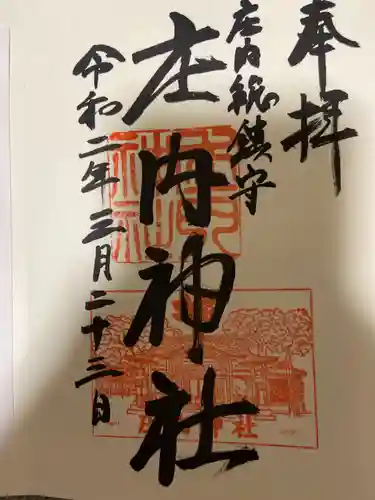 奉拝
庄内総鎮守
庄内神社
令和二年三月二十三日